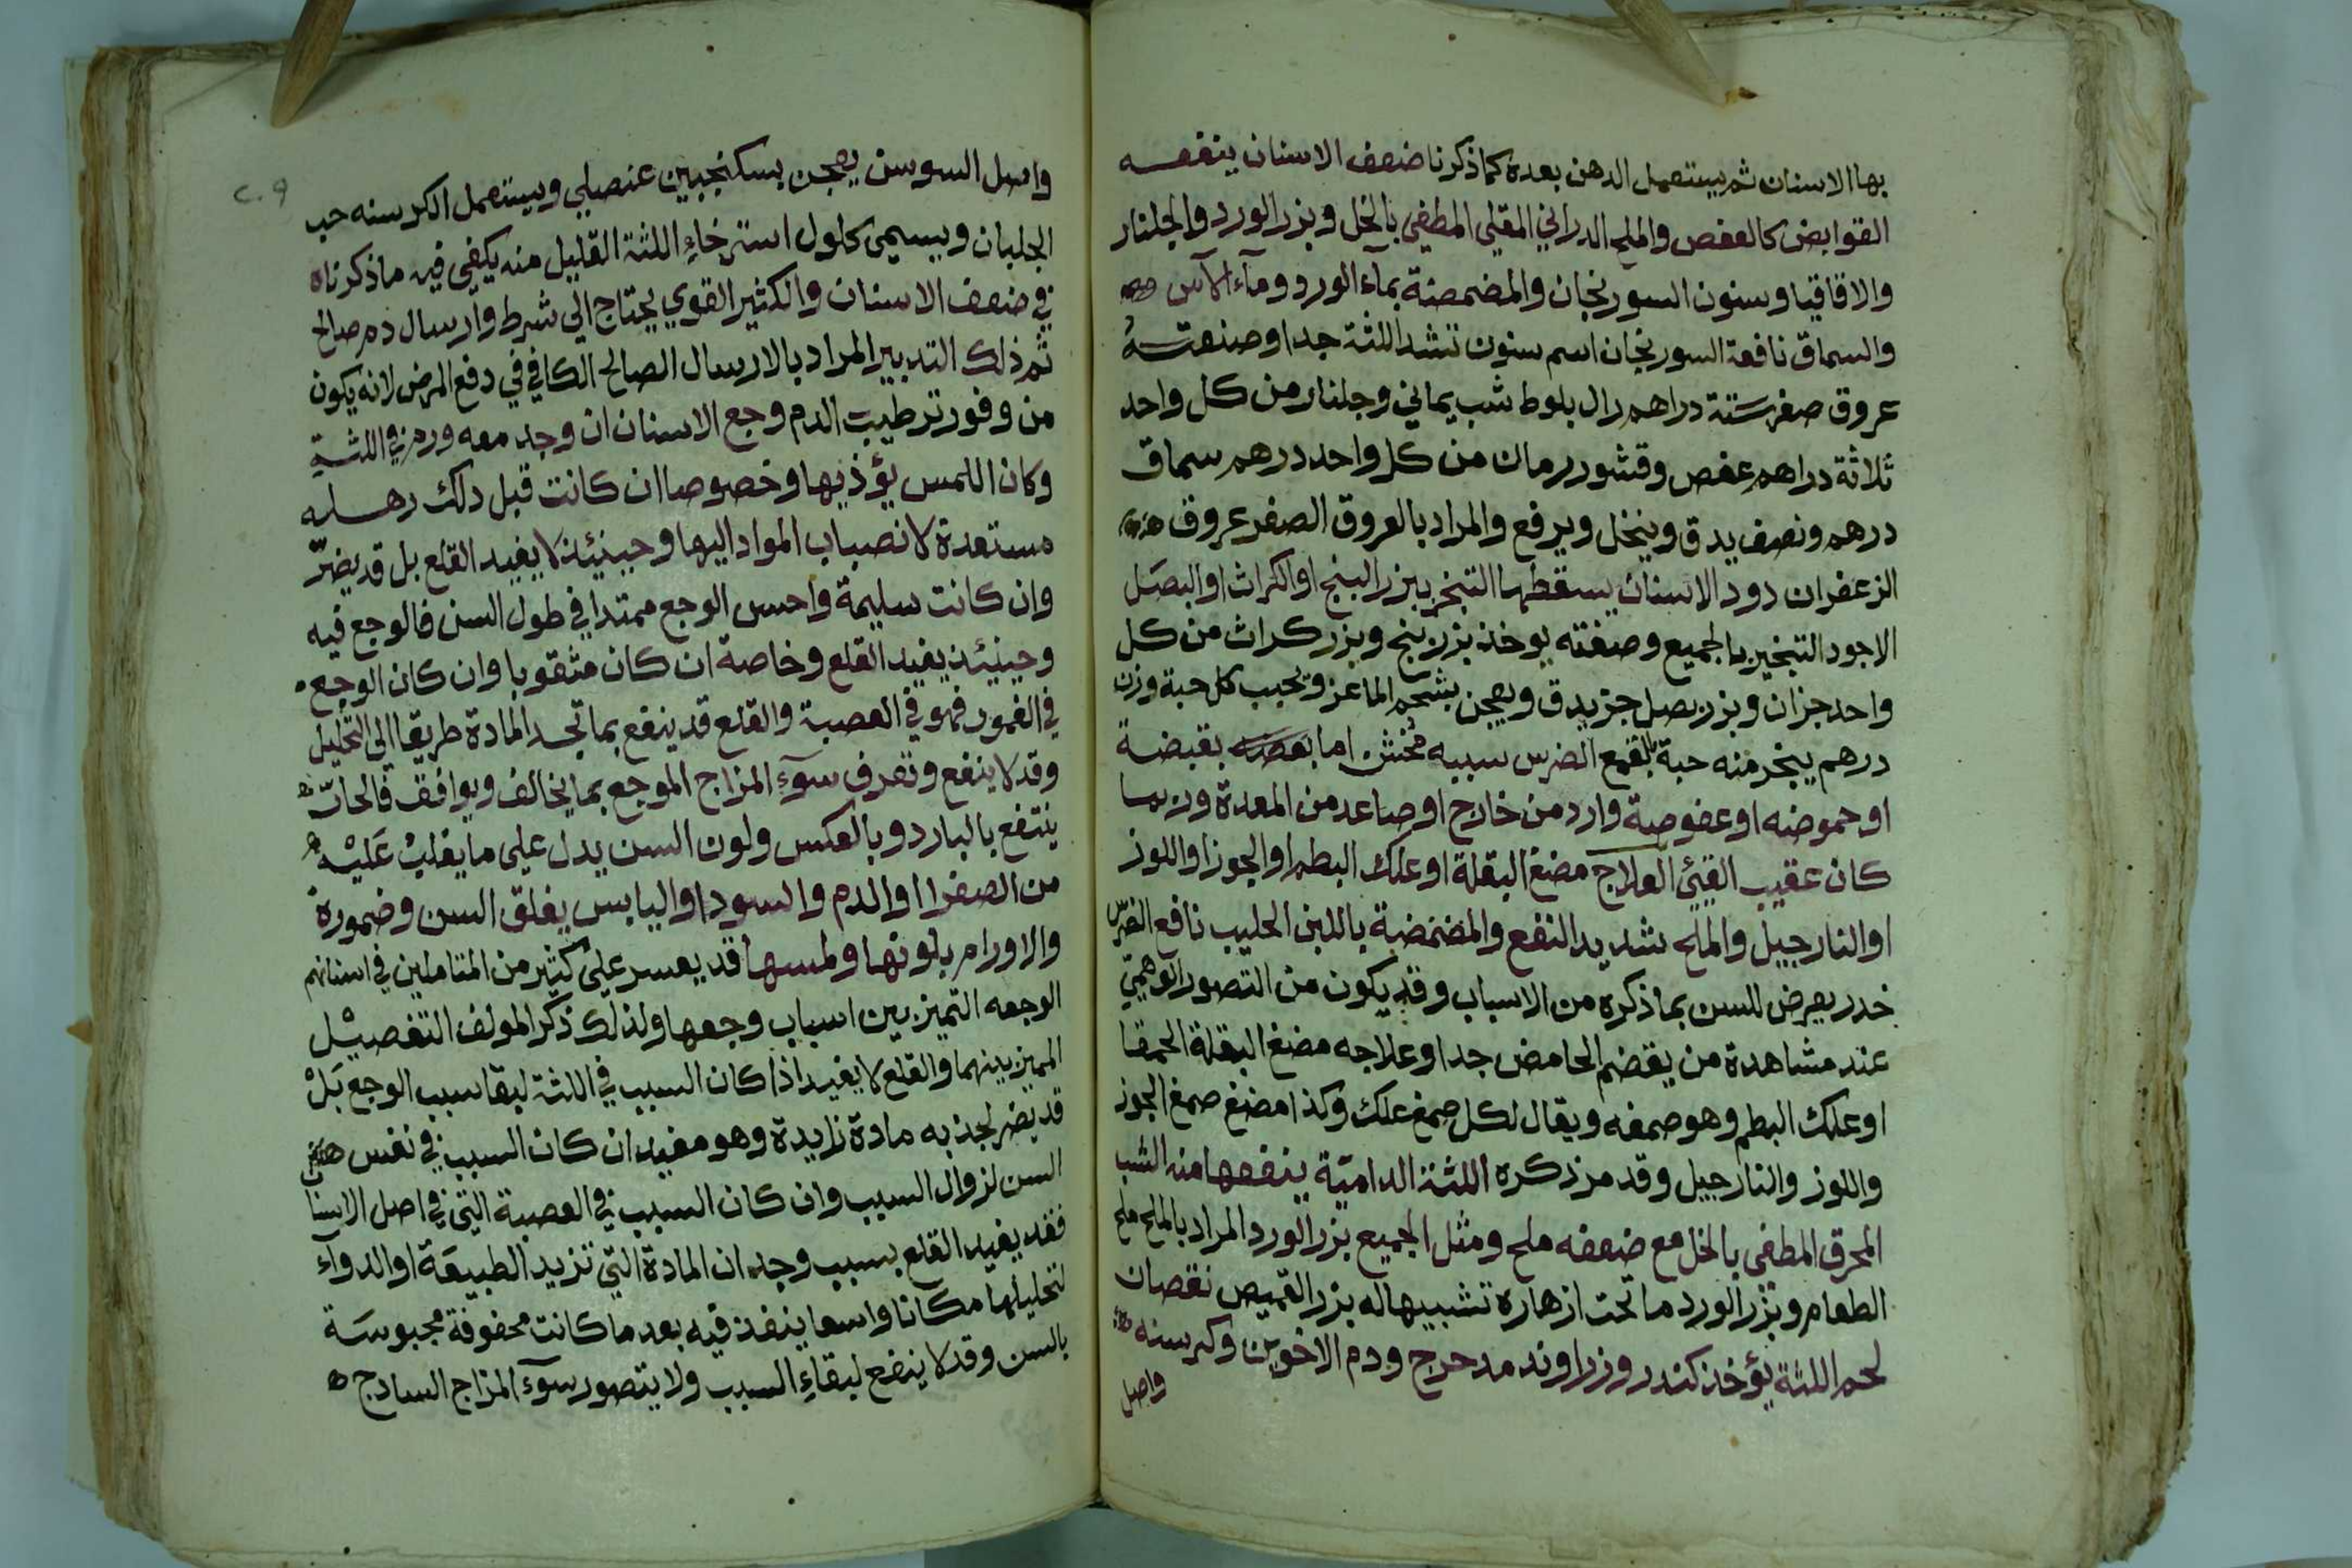 بها الاسنان ثم يستعمل الدهن بعده كما ذكرنا ضعف الاسنان ينفعه
القوابض كالعفص والملح الدراني المقلي المطفي بالخل وبزر الورد والجلنار
والاقاقيا وسنون السورنجان والمضمضة بماء الورد ومآء الآس
والسماق نافعة السورنجان اسم سنون تشد اللثة جدا وصنعته
عروق صفر ستة دراهم زال بلوط شب يماني وجلنار من كل واحد
ثلاثة دراهم عفص وقشور رمان من كل واحد درهم سماق
درهم ونصف يدق وينخل ويرفع والمراد بالعروق الصفر عروق
الزعفران دود الاسنان يسقطها التبخر ببزر البنج او الكراث او البصل
الاجود التبخير بالجميع وصنعته يوخذ بزر بنج وبزر كراث من كل
واحد جزان وبزر بصل جز يدق ويعجن بشحم الماعز ويحبب كل حبة وزن
درهم يبخر منه حبة بقمع الضرس سببه مخشن اما بعضه بقبضة
او حموضه او عفوصة وارد من خارج او صاعد من المعدة وربما
كان عقيب القيئ العلاج مضغ البقلة او علك البطم او الجوز او اللوز
او النارجيل والملح شديد النفع والمضمضة باللبن الحليب نافع الضرس
خدر يعرض للسن بما ذكره من الاسباب وقد يكون من التصور الوهمي
عند مشاهدة من يقضم الحامض جدا وعلاجه مضغ البقلة الحمقا
او علك البطم وهو صمغه ويقال لكل صمغ علك وكذا مضغ صمغ الجوز
واللوز والنارجيل وقد مر ذكره اللثة الدامية ينفعها منه الشب
المحرق المطفى بالخل مع ضعفه ملح ومثل الجميع بزر الورد المراد بالملح ملح
الطعام وبزر الورد ما تحت ازهاره تشبيها له بزر القميص نقصان
لحم اللثة يؤخذ كندر وزراوند مدحرج ودم الاخوين وكرسنه
واصل
واصل السوسن يعجن بسكنجبين عنصلي ويستعمل الكرسنه حب
الجلبان ويسمى كلول استرخاء اللثة القليل منه يكفي فيه ما ذكرناه
في ضعف الاسنان والكثير القوي يحتاج الي شرط وارسال دم صالح
ثم ذلك التدبير المراد بالارسال الصالح الكافي في دفع المرض لانه يكون
من وفور ترطيب الدم وجع الاسنان ان وجد معه ورم في اللثة
وكان اللمس يؤذيها وخصوصا ان كانت قبل ذلك رهله
مستعدة لانصباب المواد اليها وحينئذ لا يفيد القلع بل قد يضر
وان كانت سليمة واحس الوجع ممتدا في طول السن فالوجع فيه
وحينئذ يفيد القلع وخاصة ان كان مثقوبا وان كان الوجع
في الغمور فهو في العصبة والقلع قد ينفع بما تجد المادة طريقا الى التحليل
وقد لا ينفع وتعرف سوء المزاج الموجع بما يخالف ويوافق فالحار
ينتفع بالبارد وبالعكس ولون السن يدل على ما يغلب عليه
من الصفرا او الدم والسودا واليابس يغلق السن وضموره
والاورام بلونها ولمسها قد يعسر على كثير من المتاملين في اسنانهم
الوجعه التميز بين اسباب وجعها ولذلك ذكر المولف التفصيل
المميز بينهما والقلع لا يفيد اذا كان السبب في اللثة لبقا سبب الوجع بل
قد يضر لجذبه مادة زايدة وهو مفيد ان كان السبب في نفس
السن لزوال السبب وان كان السبب في العصبة التي في اصل الاسنا
فقد يفيد القلع بسبب وجدان المادة التي تزيد الطبيعة او الدوآء
لتحليلها مكانا واسعا ينفذ فيه بعد ما كانت محفوفة محبوسة
بالسن وقد لا ينفع لبقاء السبب ولا يتصور سوء المزاج السادج